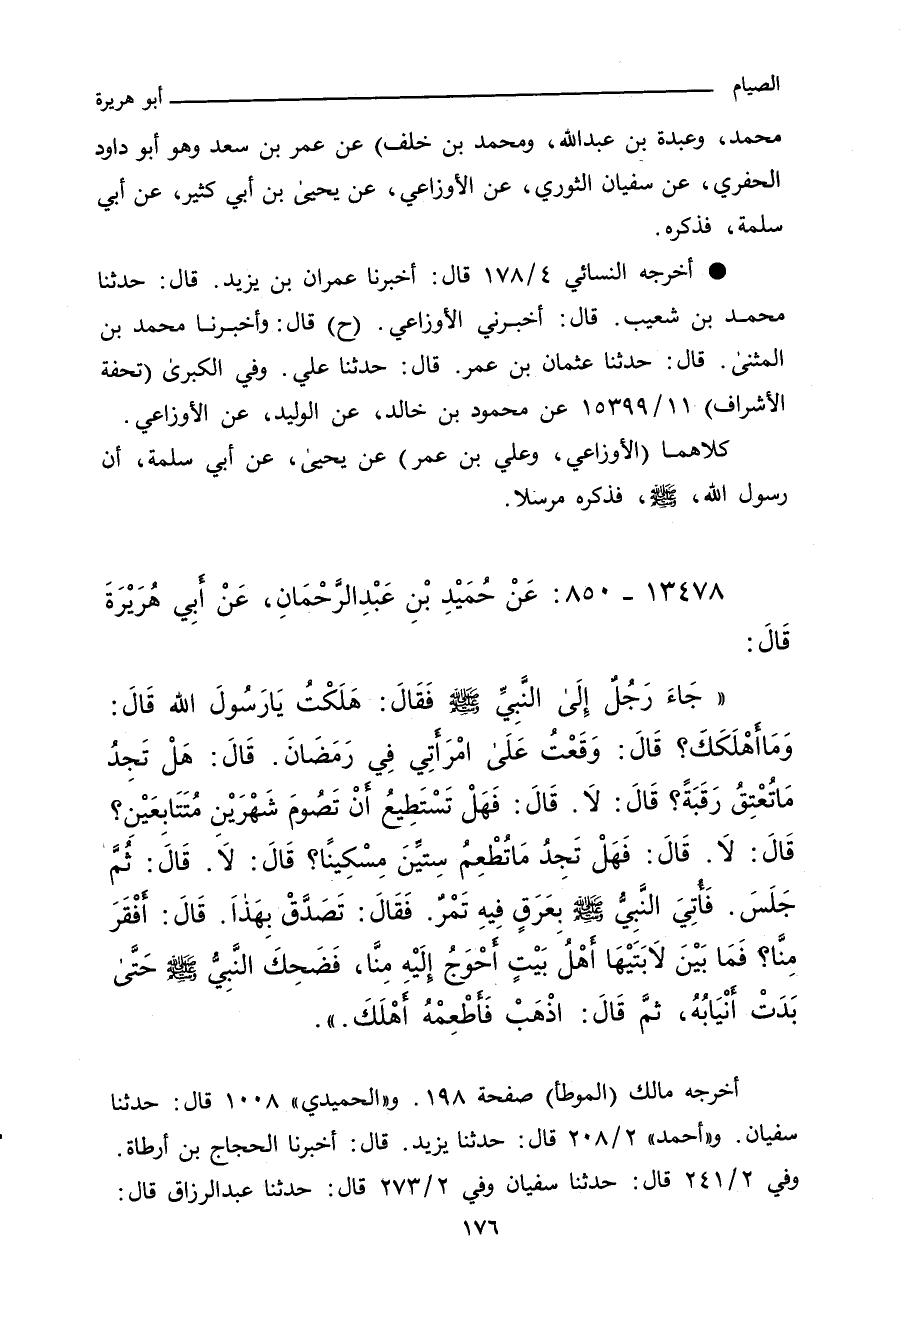 الصيام ــــــــــــــــــــ أبو هريرة
محمد، وعبدة بن عبدالله، ومحمد بن خلف) عن عمر بن سعد وهو أبو داود
الحفري، عن سفيان الثوري، عن الأوزاعي، عن يحيىٰ بن أبي كثير، عن أبي
سلمة، فذكره.
● أخرجه النسائي ١٧٨/٤ قال: أخبرنا عمران بن يزيد. قال: حدثنا
محمد بن شعيب. قال: أخبرني الأوزاعي. (ح) قال: وأخبرنا محمد بن
المثنىٰ. قال: حدثنا عثمان بن عمر. قال: حدثنا علي. وفي الكبرىٰ (تحفة
الأشراف) ١٥٣٩٩/١١ عن محمود بن خالد، عن الوليد، عن الأوزاعي.
كلاهما (الأوزاعي، وعلي بن عمر) عن يحيىٰ، عن أبي سلمة، أن
رسول الله، ﷺ، فذكره مرسلا.
١٣٤٧٨ - ٨٥٠: عَنْ حُمَيْدِ بْنِ عَبْدِالرَّحْمَانِ، عَنْ أَبِي هُرَيْرَةَ
قَالَ:
« جَاءَ رَجُلٌ إِلَىٰ النَّبِيِّ ﷺ فَقَالَ: هَلَكْتُ يَارَسُولَ الله قَالَ:
وَمَاأَهْلَكَكَ؟ قَالَ: وَقَعْتُ عَلَىٰ امْرَأَتِي فِي رَمَضَانَ. قَالَ: هَلْ تَجِدُ
مَاتُعْتِقُ رَقَبَةً؟ قَالَ: لَا. قَالَ: فَهَلْ تَسْتَطِيعُ أَنْ تَصُومَ شَهْرَيْنِ مُتَتَابِعَيْنِ؟
قَالَ: لَا. قَالَ: فَهَلْ تَجِدُ مَاتُطْعِمُ سِتِّينَ مِسْكِينًا؟ قَالَ: لَا. قَالَ: ثُمَّ
جَلَسَ. فَأُتِيَ النَّبِيُّ ﷺ بِعَرَقٍ فِيهِ تَمْرٌ. فَقَالَ: تَصَدَّقْ بِهَذَا. قَالَ: أَفْقَرَ
مِنَّا؟ فَمَا بَيْنَ لَابَتَيْهَا أَهْلُ بَيْتٍ أَحْوَجُ إِلَيْهِ مِنَّا، فَضَحِكَ النَّبِيُّ ﷺ حَتَّىٰ
بَدَتْ أَنْيَابُهُ، ثمَّ قَالَ: اذْهَبْ فَأَطْعِمْهُ أَهْلَكَ.».
أخرجه مالك (الموطأ) صفحة ١٩٨. و«الحميدي» ١٠٠٨ قال: حدثنا
سفيان. و«أحمد» ٢٠٨/٢ قال: حدثنا يزيد. قال: أخبرنا الحجاج بن أرطاة.
وفي ٢٤١/٢ قال: حدثنا سفيان وفي ٢٧٣/٢ قال: حدثنا عبدالرزاق قال:
١٧٦